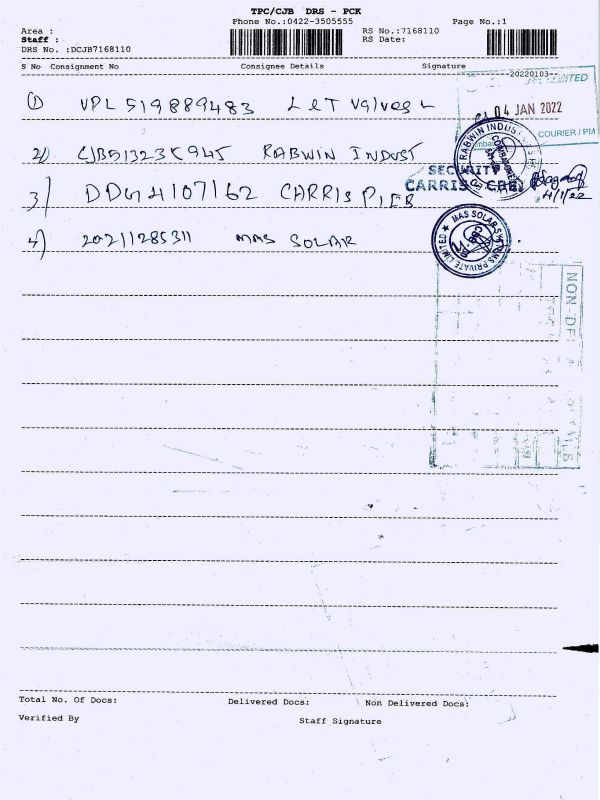 TPC/CJB DRS - PCK
Phone No.:0422-3505555 Page No.:1
Area :
Staff :
DRS No. :DCJB7168110
RS No.:7168110
RS Date:
S No Consignment No Consignee Details Signature
20220103
04 JAN 2022
COURIER / PM
1) VPL 519889483 L&T Valves L
2) CJB51323K945 RABWIN INDUST
RABWIN INDUS
SECURITY
CARRIS
3) DDG14107162 CARRIS
4/1/22
4) 20211285311 MAS SOLAR
MAS SOLAR SYSTEMS PRIVATE LIMITED
CBE
NON - DE
Total No. Of Docs: Delivered Docs: Non Delivered Docs:
Verified By Staff Signature